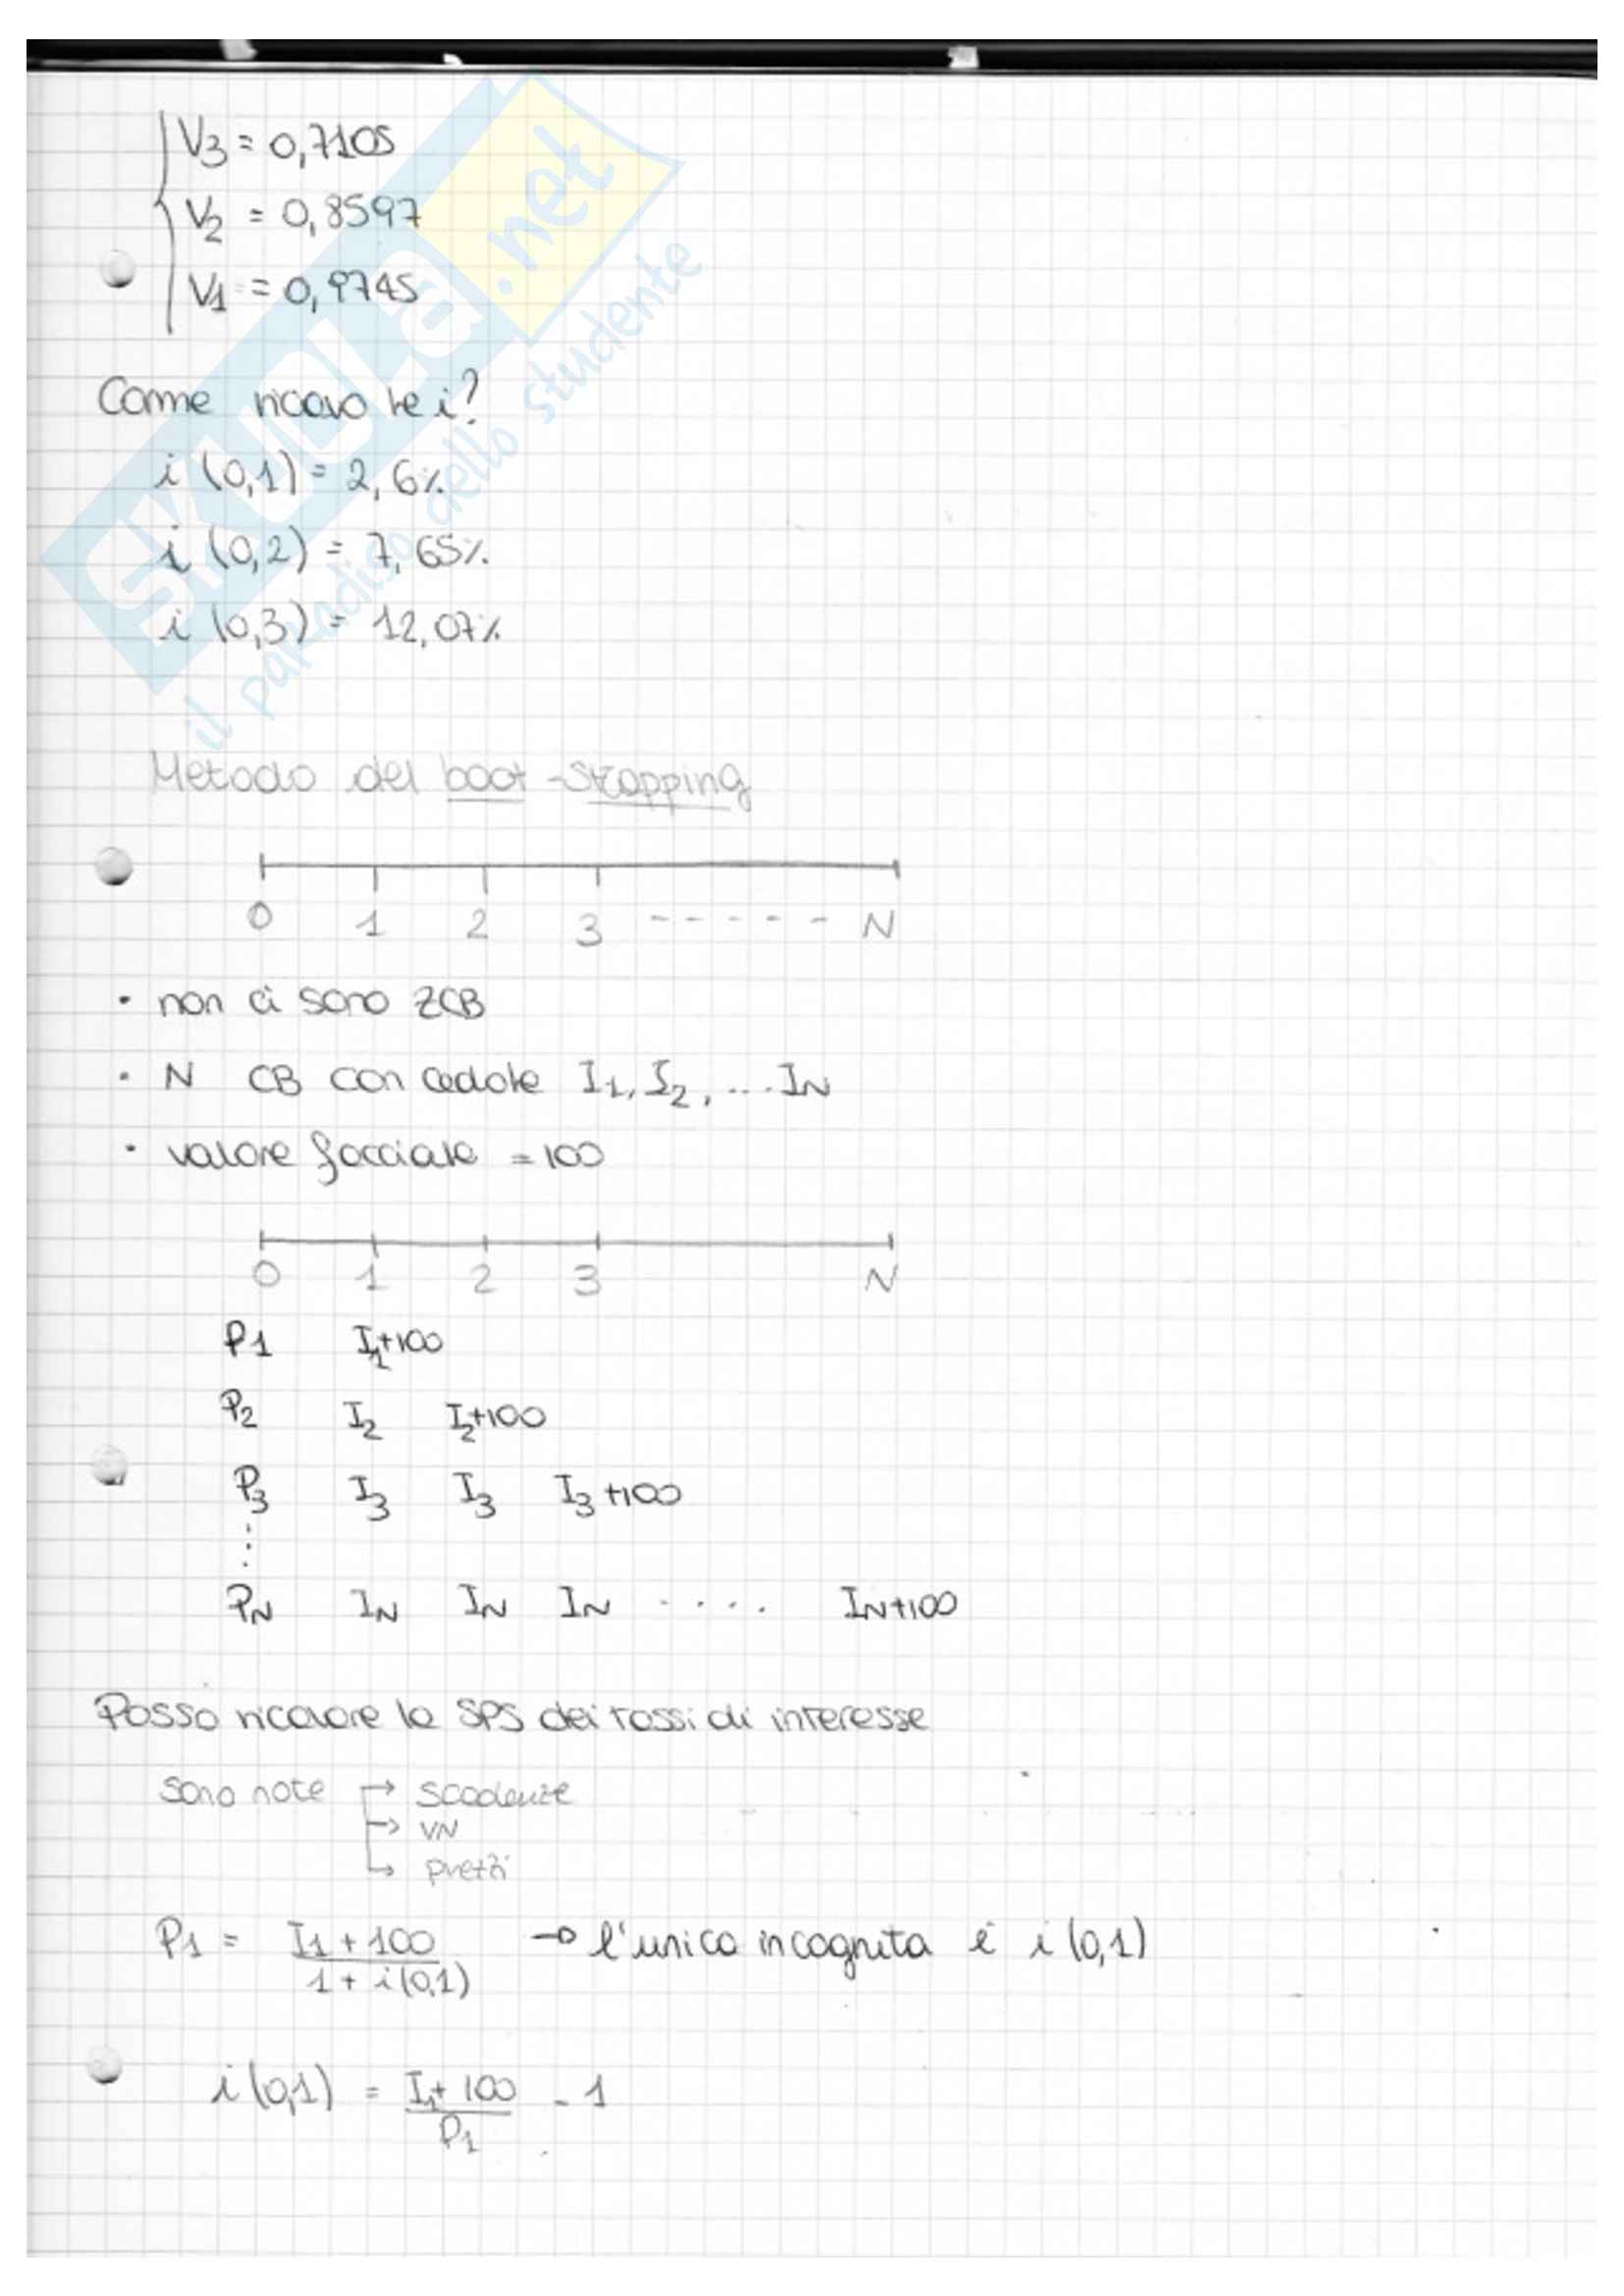 V3 = 0,7105
V2 = 0,8597
V1 = 0,9745
Come ricavo le i?
i (0,1) = 2,6%
i (0,2) = 7,65%
i (0,3) = 12,07%
SKUOLA.net
il paradiso dello studente
Metodo del boot-strapping
0 1 2 3 ----- N
• non ci sono ZCB
• N CB con cedole I1, I2, ... IN
• valore facciale = 100
0 1 2 3 N
P1 I1+100
P2 I2 I2+100
P3 I3 I3 I3+100
⋮
PN IN IN IN .... IN+100
Posso ricavare la SPS dei tassi di interesse
sono note → scadenze
→ VN
→ prezzi
P1 = I1 + 100 / 1 + i(0,1) → l'unica incognita è i (0,1)
i (0,1) = I1 + 100 / P1 - 1